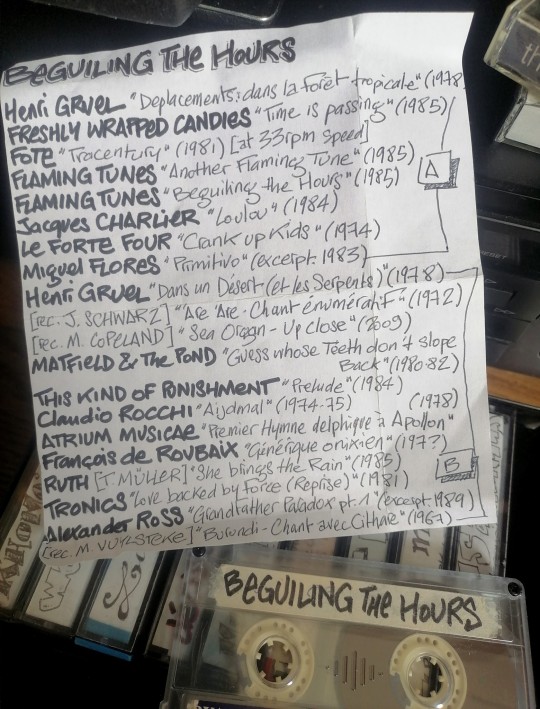 BEGUILING THE HOURS
Henri GRUEL "Déplacements: dans la forêt tropicale" (1978)
FRESHLY WRAPPED CANDIES "Time is passing" (1985)
FOTE "Tracentury" (1981) [at 33rpm speed]
FLAMING TUNES "Another Flaming Tune" (1985)
FLAMING TUNES "Beguiling the Hours" (1985)
Jacques CHARLIER "Loulou" (1984)
LE FORTE FOUR "Crank up Kids" (1974)
Miguel FLORES "Primitivo" (excerpt. 1983)
A
Henri GRUEL "Dans un Désert (et les Serpents)" (1978)
[rec. J. SCHWARZ] "Are Are - Chant énumératif" (1972)
[rec. M. COPELAND] "Sea Oragn - Up close" (2009)
MATFIELD & The POND "Guess whose Teeth don't slope
Back" (1980-82)
THIS KIND OF PUNISHMENT "Prelude" (1984)
Claudio ROCCHI "Aijdmal" (1974-75)
(1978)
ATRIUM MUSICAE "Premier Hymne delphique à Apollon"
François de ROUBAIX "Générique onixien" (197?)
RUTH [T. MÜLLER] "She brings the Rain" (1985)
TRONICS "Love backed by force (Reprise)" (1981)
Alexander ROSS "Grandfather Paradox pt. 1" (excerpt 1989)
[rec. M. VUYLSTEKE] "Burundi - Chant avec Cithare" (1967)
B
BEGUILING THE HOURS